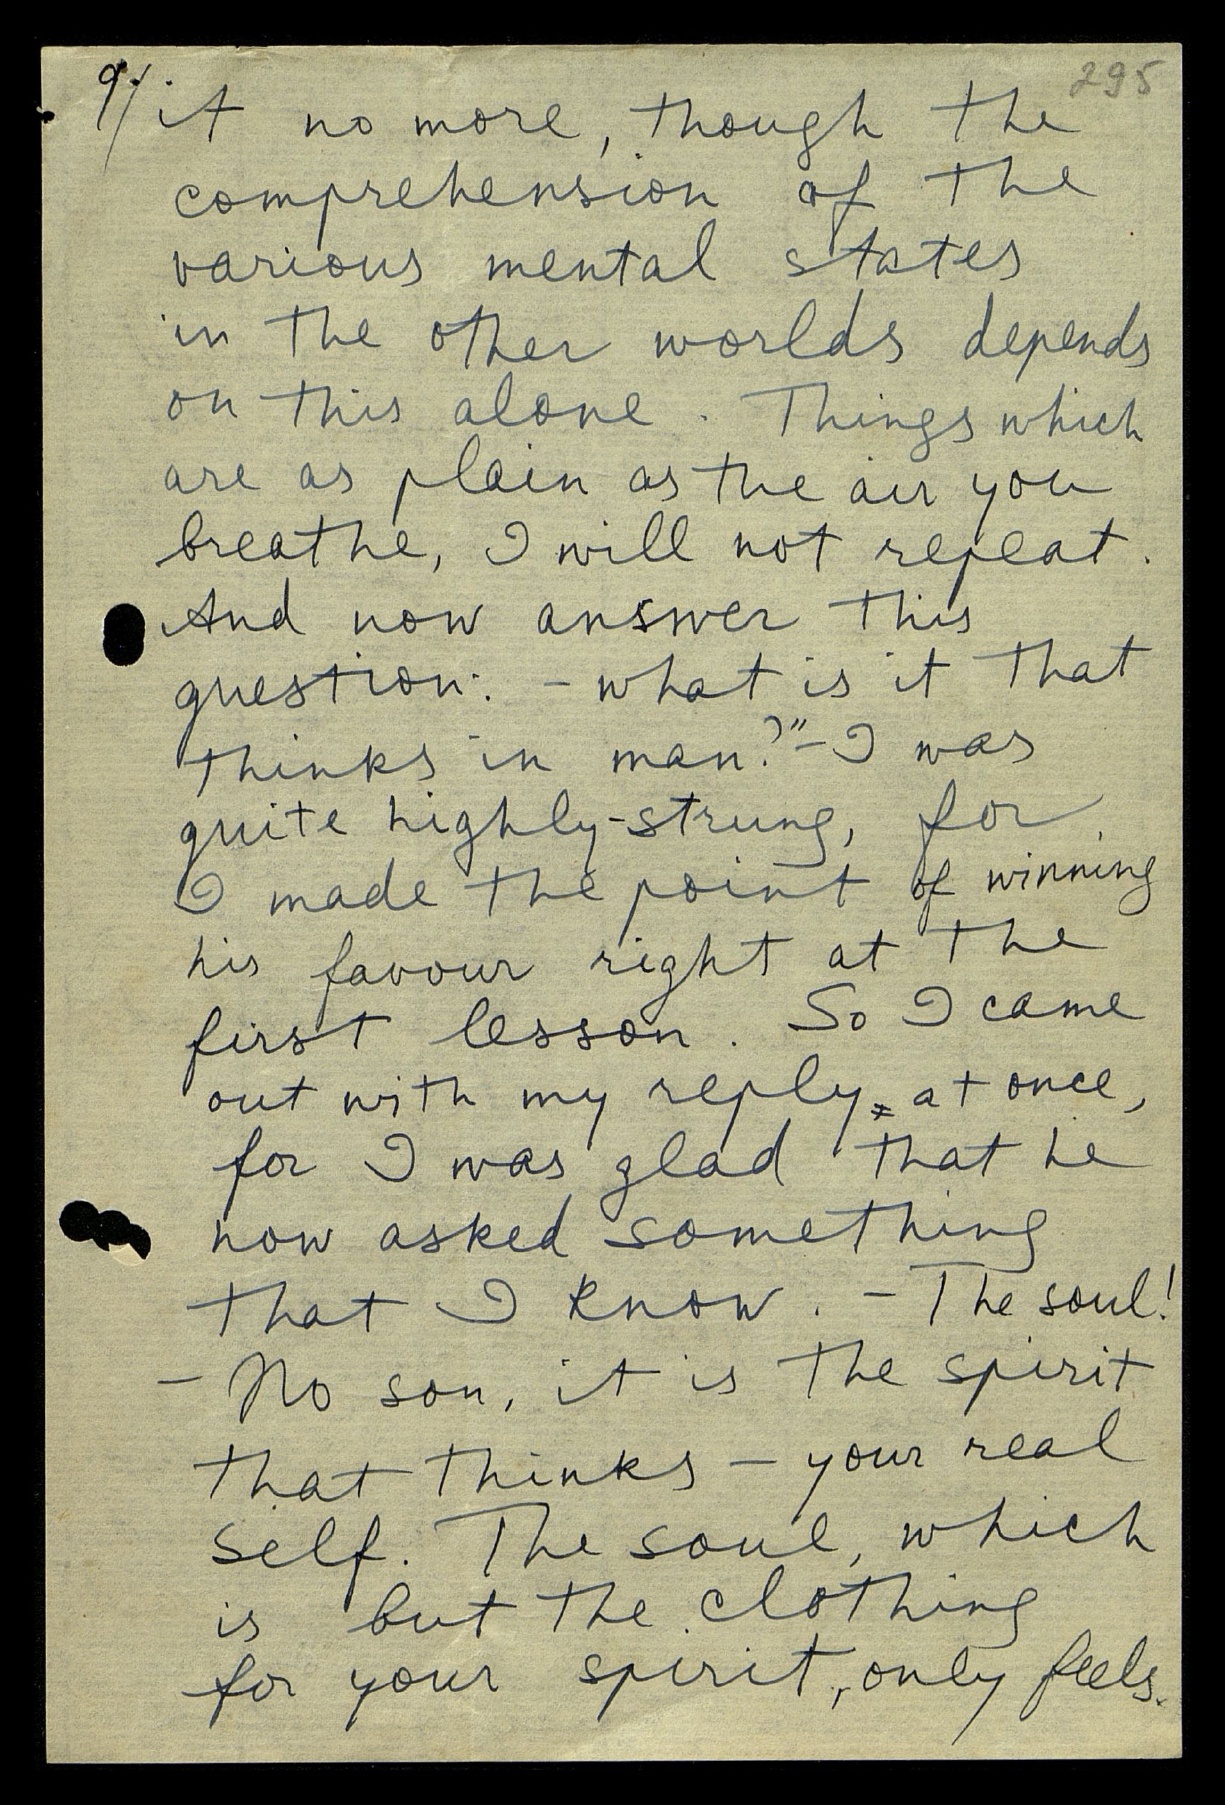 295
9/ it no more, though the
comprehension of the
various mental states
in the other worlds depends
on this alone. Things which
are as plain as the air you
breathe, I will not repeat.
And now answer this
question: - what is it that
thinks in man?" - I was
quite highly-strung, for
I made the point of winning
his favour right at the
first lesson. So I came
out with my reply at once,
for I was glad that he
now asked something
that I know. - The soul!
- No son, it is the spirit
that thinks - your real
self. The soul, which
is but the clothing
for your spirit, only feels.